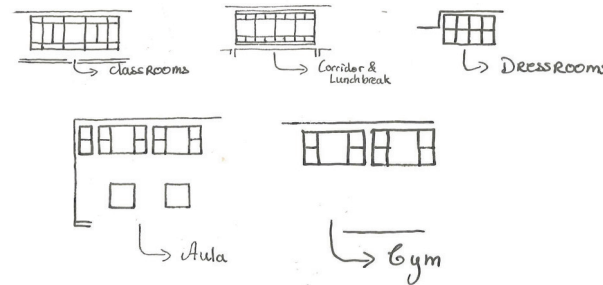 classrooms
Corridor &
Lunchbreak
DRESSROOMS
Aula
Gym